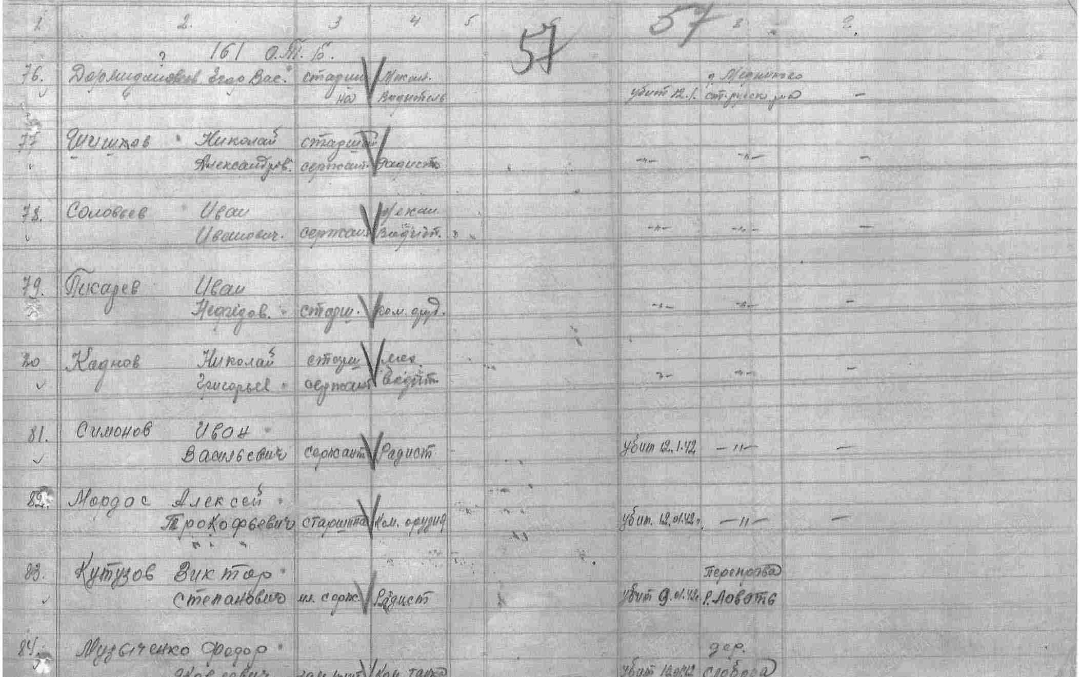 1 2. 3 4 5 57 57 8. 9.
? 161 О.Т.Б.
76. Егор Вас. старши Механ.
на водитель убит 12.1. ст. русск. р-на —
77 Шишков Николай старший
Александров. сержант Радист —„— —„— —
78. Соловьев Иван Механ
Иванович. сержант водит. —„— —„— —
79. Писарев Иван
старш. ком. оруд. —„— —„— —
80 Каднов Николай старш мех.
Григорьев сержант водит —„— —„— —
81. Симонов Иван
Васильевич сержант Радист убит 12.1.42 —„— —
82. Мордос Алексей
Прокофьевич старшина Ком. орудия убит. 12.01.42г. —„— —
„ „ „
83. Кутузов Виктор переправа
Степанович мл. серж Радист убит 9.01.42г. р. Ловать
84. Музыченко Федор дер.
Яковлевич Ком танка убит слобода